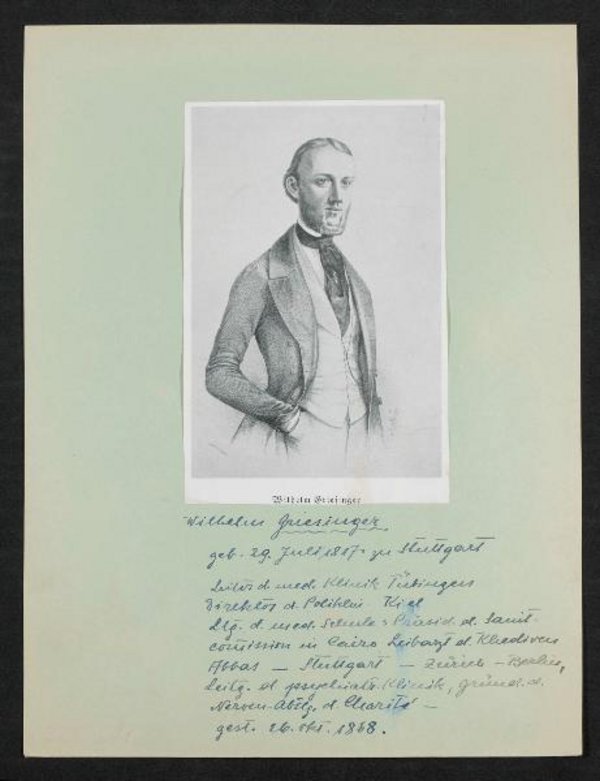 Wilhelm Griesinger
Wilhelm Griesinger
geb. 29. Juli 1817 zu Stuttgart
Leiter d. med. Klinik Tübingen
Direktor d. Poliklin Kiel
Ltg. d. med. Schule u. Präsid. d. Sanit.
comission in Cairo Leibarzt d. Khediven
Abbas — Stuttgart — Zürich — Berlin,
Leitg. d. psychiatr. Klinik, gründ. d.
Nerven-Abtlg. d. Charité —
gest. 26. Okt. 1868.